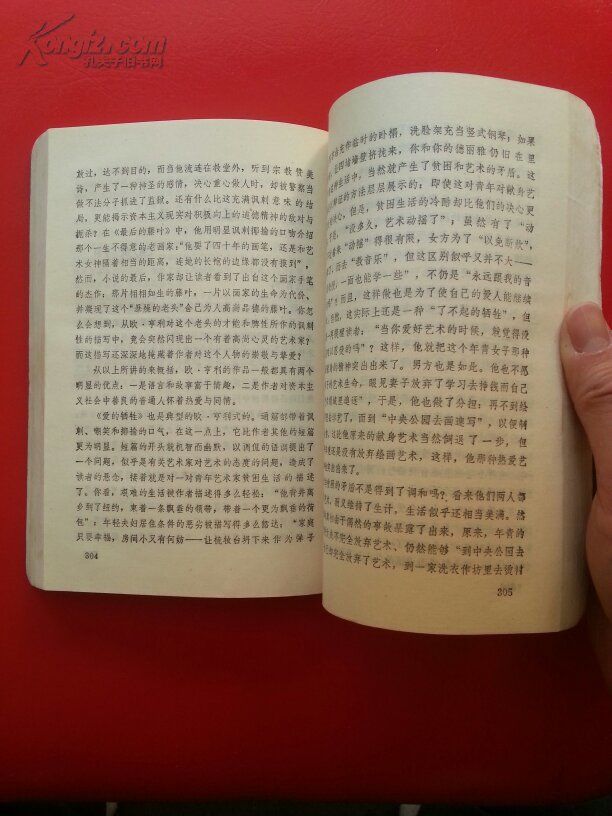 Kongfz.com
孔夫子旧书网
放过，达不到目的，而当他流连在教堂外，听到宗教赞美
诗，产生了一种神圣的感情，决心重心做人时，却被警察当
做不法分子抓进了监狱。还有什么比这充满讽刺意味的结
局，更能揭示资本主义现实对积极向上的道德精神的敌对与
扼杀？在《最后的藤叶》中，他用明显讽刺揶揄的口吻介绍
那个一生不得意的老画家：“他耍了四十年的画笔，还是和艺
术女神隔着相当的距离，连她的长袍的边缘都没有摸到”。
然而，小说的最后，作家却让读者看到了出自这个画家手笔
的杰作：那片相相如生的藤叶，一片以画家的生命为代价、
并凝现了这个“暴躁的老头”舍己为人高尚品德的藤叶。你怎
么会想到，从欧·亨利对这个老头的才能和脾性所作的讽刺
性的描写中，竟会突然闪现出一个有着高尚心灵的艺术家？
而这描写还深深地掩藏着作者对这个人物的崇敬与挚爱？
从以上所讲的来概括，欧·亨利的作品一般都具有两个
明显的优点：一是语言和故事富于情趣，二是作者对资本主
义社会中善良的普通人怀着热爱与同情。
《爱的牺牲》也是典型的欧·亨利式的。通篇都带着讽
刺、嘲笑和揶揄的口气，在这一点上，它比作者其他的短篇
更为明显。短篇的开头就机智而幽默，以调侃的语调提出了
一个问题，似乎是有关艺术家对艺术的态度的问题，造成了
读者的悬念，接着就是对一对青年艺术家贫困生活的描
述了。你看，艰难的生活被作者描述得多么轻松：“他背井离
乡到了纽约，束着一条飘垂的领带，带着一个更为飘垂的荷
包”；年轻夫妇居住条件的恶劣被描写得多么豁达：“家庭
只要幸福，房间小又有何妨——让梳妆台坍下来作为弹子
304
作临时的卧榻，洗脸架充当竖式钢琴；如果
四堵墙壁挤拢来，你和你的德丽雅仍旧在里
生活中，当然就产生了贫困和艺术的矛盾。
的方法层层展示的：即使这对青年对献身艺
决心，但是，贫困生活的冷酷却比他们的决心更
，“没多久，艺术动摇了”；虽然有了“动
“动摇”得很有限，女方为了“以免断炊”，
而去“教音乐”，但这区别似乎又并不大——
一面也能学一些”，不仍是“永远跟我的音
而且，这样做也是为了使自己的爱人能继续
，这实际上还是一种“了不起的牺牲”，但
要提醒读者：“当你爱好艺术的时候，就觉得没
以忍受的吗”？这样，他就把这个年青女子那种
的精神突出出来了。男方也是如此。他也不愿
艺术生命，眼见妻子放弃了学习去挣钱而自己
域里追逐”，于是，他也做了分担：再不到绘
艺了，而到“中央公园去画速写”，以便制
比他原来的献身艺术当然倒退了一步，但
还是没有放弃绘画艺术，这样，他那种热爱艺
出来了。
的矛盾不是得到了调和吗？看来他们两人都
，而又维持了生计，生活似乎还相当美满。然
于偶然的事故暴露了出来，原来，年青的
不完全放弃了艺术、仍然能够“到中央公园去
完全放弃了艺术，到一家洗衣作坊里去烫衬
305